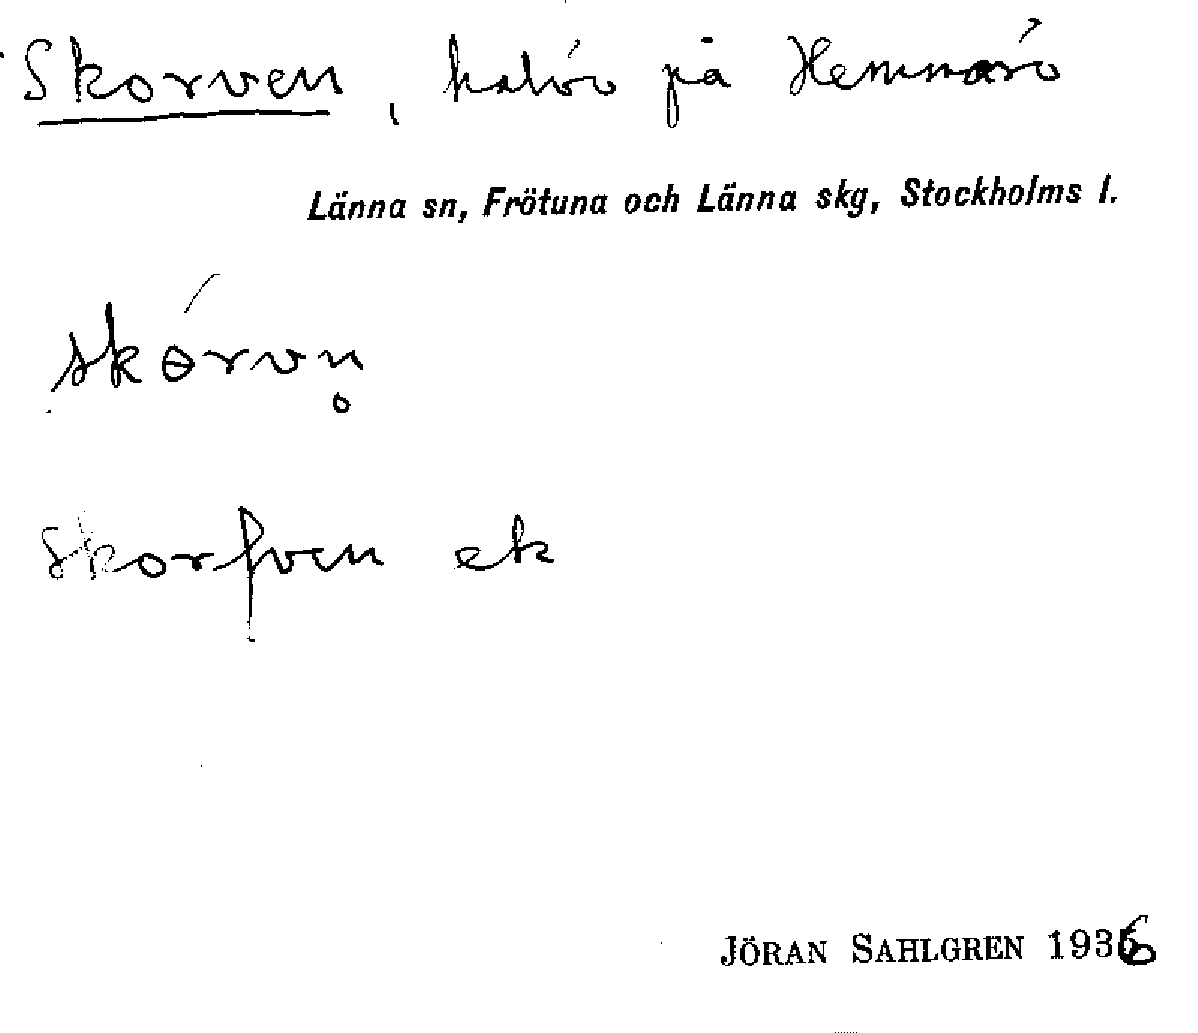 Skorven, halvö på Hemmarö
Länna sn, Frötuna och Länna skg, Stockholms l.
skɵ́rvn̥
skorfven ek
JÖRAN SAHLGREN 1936